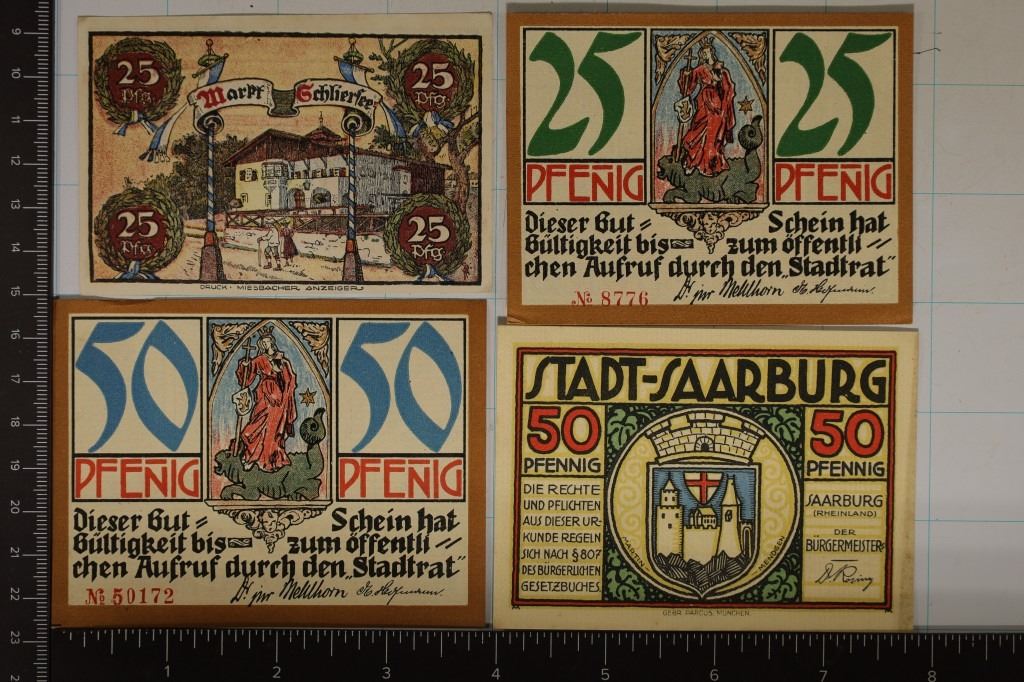 25
Pfg.
25
Pfg.
Markt Schliersee
25
Pfg.
25
Pfg.
DRUCK · MIESBACHER ANZEIGER
25 25
PFEN̄IG PFEN̄IG
Dieser Gut= Schein hat
Gültigkeit bis= zum öffentli=
chen Aufruf durch den „Stadtrat"
№ 8776
Dr jur Mehlhorn
50 50
PFEN̄IG PFEN̄IG
Dieser Gut= Schein hat
Gültigkeit bis= zum öffentli=
chen Aufruf durch den „Stadtrat"
№ 50172
Dr jur Mehlhorn
STADT-SAARBURG
50
PFENNIG
50
PFENNIG
DIE RECHTE
UND PFLICHTEN
AUS DIESER UR-
KUNDE REGELN
SICH NACH § 807
DES BÜRGERLICHEN
GESETZBUCHES
MARTIN MENDGEN
SAARBURG
(RHEINLAND)
DER
BÜRGERMEISTER
GEBR. PARCUS, MÜNCHEN.
9
10
11
12
13
14
15
16
17
18
19
20
21
22
23
1 2 3 4 5 6 7 8